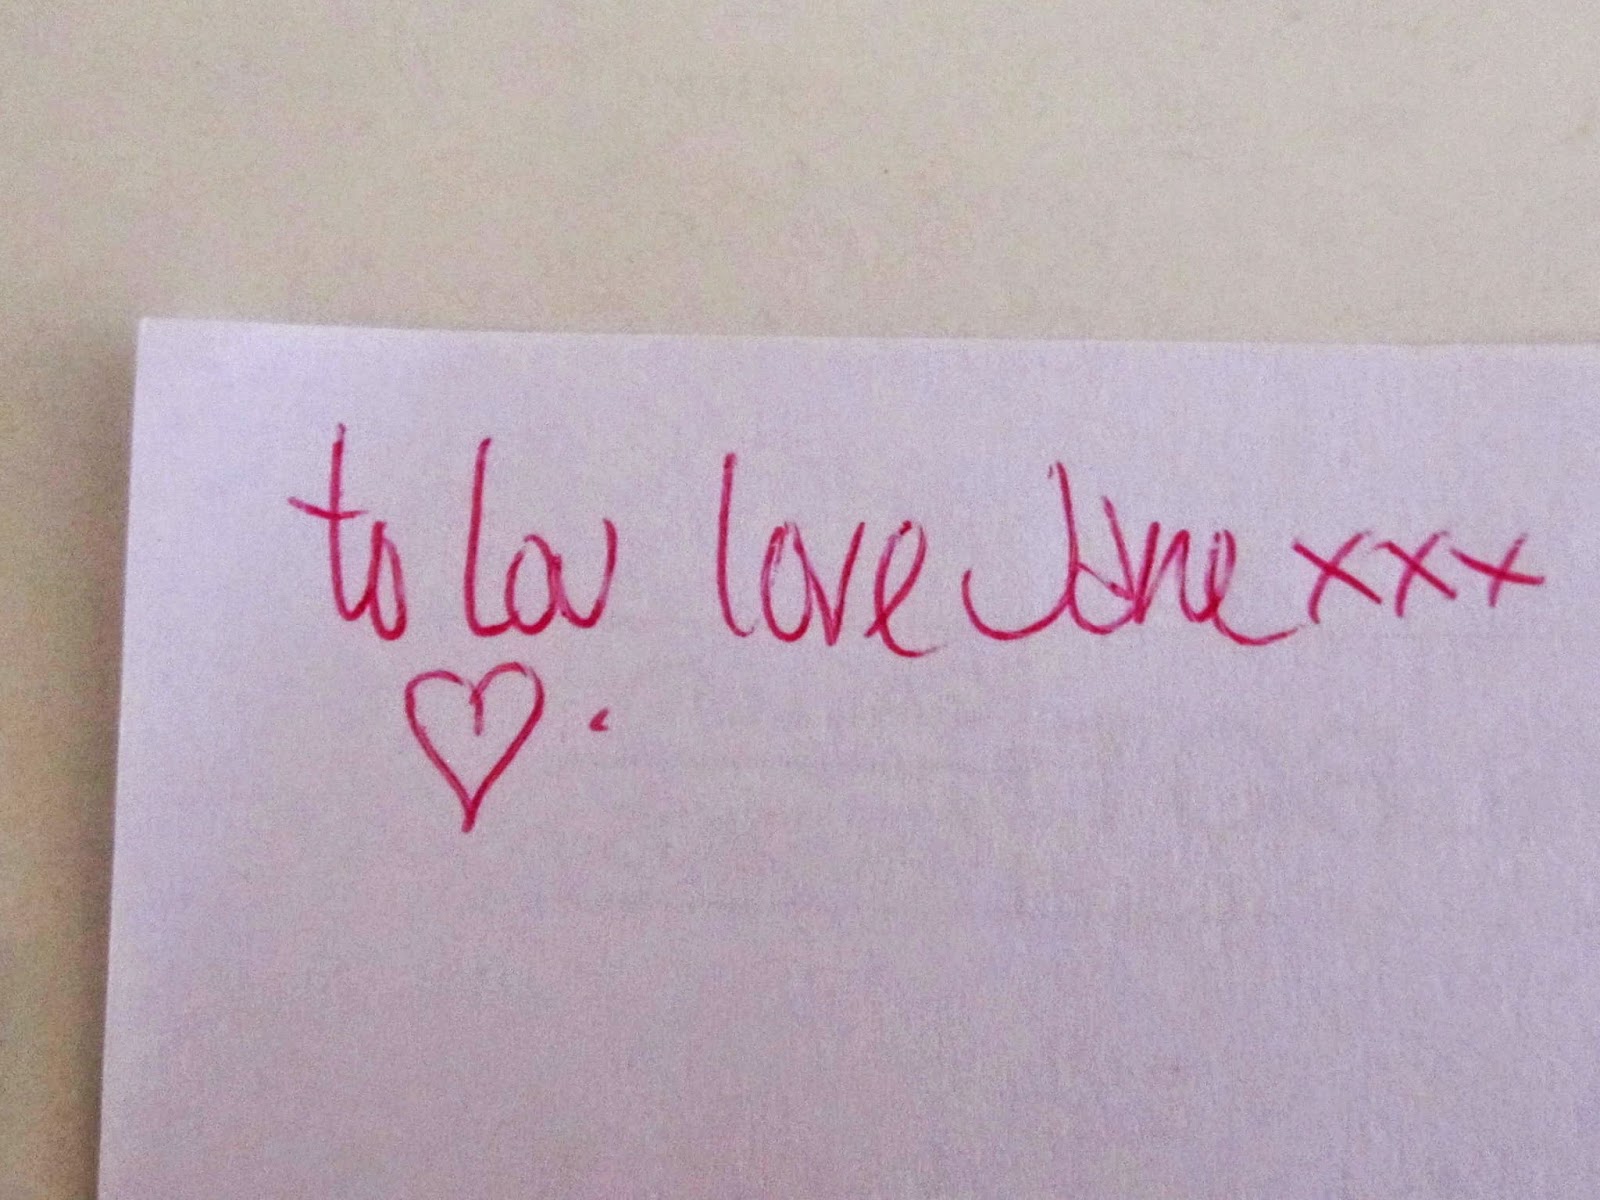 to Lou love Jane xxx